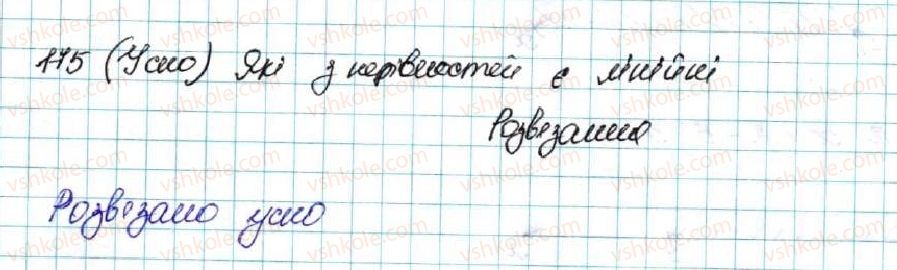 175 (Усно) Які з нерівностей є лінійні
Розвезання
Розвезано усно